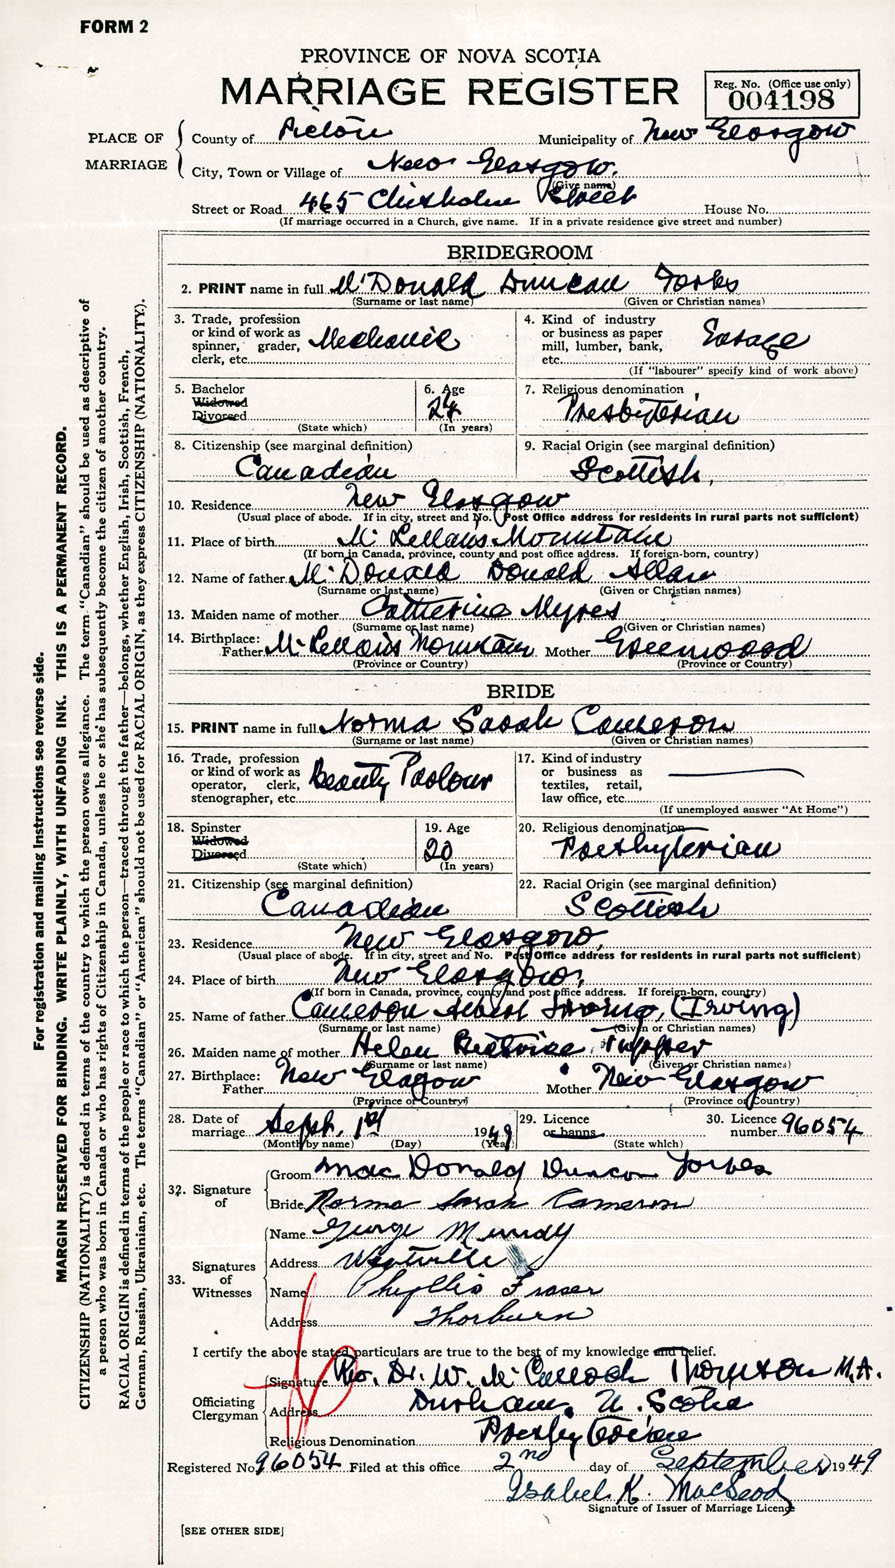 FORM 2
PROVINCE OF NOVA SCOTIA
MARRIAGE REGISTER
Reg. No. (Office use only)
004198
PLACE OF MARRIAGE
County of Pictou Municipality of New Glasgow
City, Town or Village of New Glasgow.
(Give name)
Street or Road 465 Chisholm Street House No.
(If marriage occurred in a Church, give name. If in a private residence give street and number)
BRIDEGROOM
2. PRINT name in full McDonald Duncan Forbes
(Surname or last name) (Given or Christian names)
3. Trade, profession or kind of work as spinner, grader, clerk, etc. Mechanic
4. Kind of industry or business as paper mill, lumber, bank, etc. Garage
(If "labourer" specify kind of work above)
5. Bachelor Widowed Divorced
(State which)
6. Age 24
(In years)
7. Religious denomination Presbyterian
8. Citizenship (see marginal definition) Canadian
9. Racial Origin (see marginal definition) Scottish,
10. Residence New Glasgow
(Usual place of abode. If in city, street and No. Post Office address for residents in rural parts not sufficient)
11. Place of birth McLellans Mountain
(If born in Canada, province, county and post office address. If foreign-born, country)
12. Name of father McDonald Donald Allan
(Surname or last name) (Given or Christian names)
13. Maiden name of mother Catherine Myres
(Surname or last name) (Given or Christian names)
14. Birthplace: Father McLellans Mountain Mother Greenwood
(Province or Country) (Province or Country)
BRIDE
15. PRINT name in full Norma Sarah Cameron
(Surname or last name) (Given or Christian names)
16. Trade, profession or kind of work as operator, clerk, stenographer, etc. Beauty Parlour
17. Kind of industry or business as textiles, retail, law office, etc.
(If unemployed answer "At Home")
18. Spinster Widowed Divorced
(State which)
19. Age 20
(In years)
20. Religious denomination Presbyterian
21. Citizenship (see marginal definition) Canadian
22. Racial Origin (see marginal definition) Scottish
23. Residence New Glasgow,
(Usual place of abode. If in city, street and No. Post Office address for residents in rural parts not sufficient)
24. Place of birth New Glasgow,
(If born in Canada, province, county and post office address. If foreign-born, country)
25. Name of father Cameron Albert Irving, (Irving)
(Surname or last name) (Given or Christian names)
26. Maiden name of mother Helen Beatrice Tupper
(Surname or last name) (Given or Christian names)
27. Birthplace: Father New Glagow Mother New Glasgow
(Province or Country) (Province or Country)
28. Date of marriage Sept. 1st 1949
(Month by name) (Day) (Year)
29. Licence or banns
(State which)
30. Licence number 96054
32. Signature of
Groom Mac Donald Duncan Forbes
Bride Norma Sarah Cameron
33. Signatures of Witnesses
Name George Munday
Address Westville
Name Phyllis Fraser
Address Thorburn
I certify the above stated particulars are true to the best of my knowledge and belief.
Officiating Clergyman
Signature Rev. Dr. W. McCulloch Thompson M.A.
Address Durham, N. Scotia
Religious Denomination Presbyterian
Registered No. 96054 Filed at this office 2nd day of September 1949
Isabel K. MacLeod
Signature of Issuer of Marriage Licence
[SEE OTHER SIDE]
For registration and mailing instructions see reverse side.
MARGIN RESERVED FOR BINDING. WRITE PLAINLY, WITH UNFADING INK. THIS IS A PERMANENT RECORD.
CITIZENSHIP (NATIONALITY) is defined in terms of the country to which the person owes allegiance. The term "Canadian" should be used as descriptive of
a person who was born in Canada or who has rights of Citizenship in Canada, unless he or she has subsequently become the citizen of another country.
RACIAL ORIGIN is defined in terms of the people or race to which the person—traced through the father—belongs, whether English, Irish, Scottish, French,
German, Russian, Ukrainian, etc. The terms "Canadian" or "American" should not be used for RACIAL ORIGIN, as they express CITIZENSHIP (NATIONALITY).